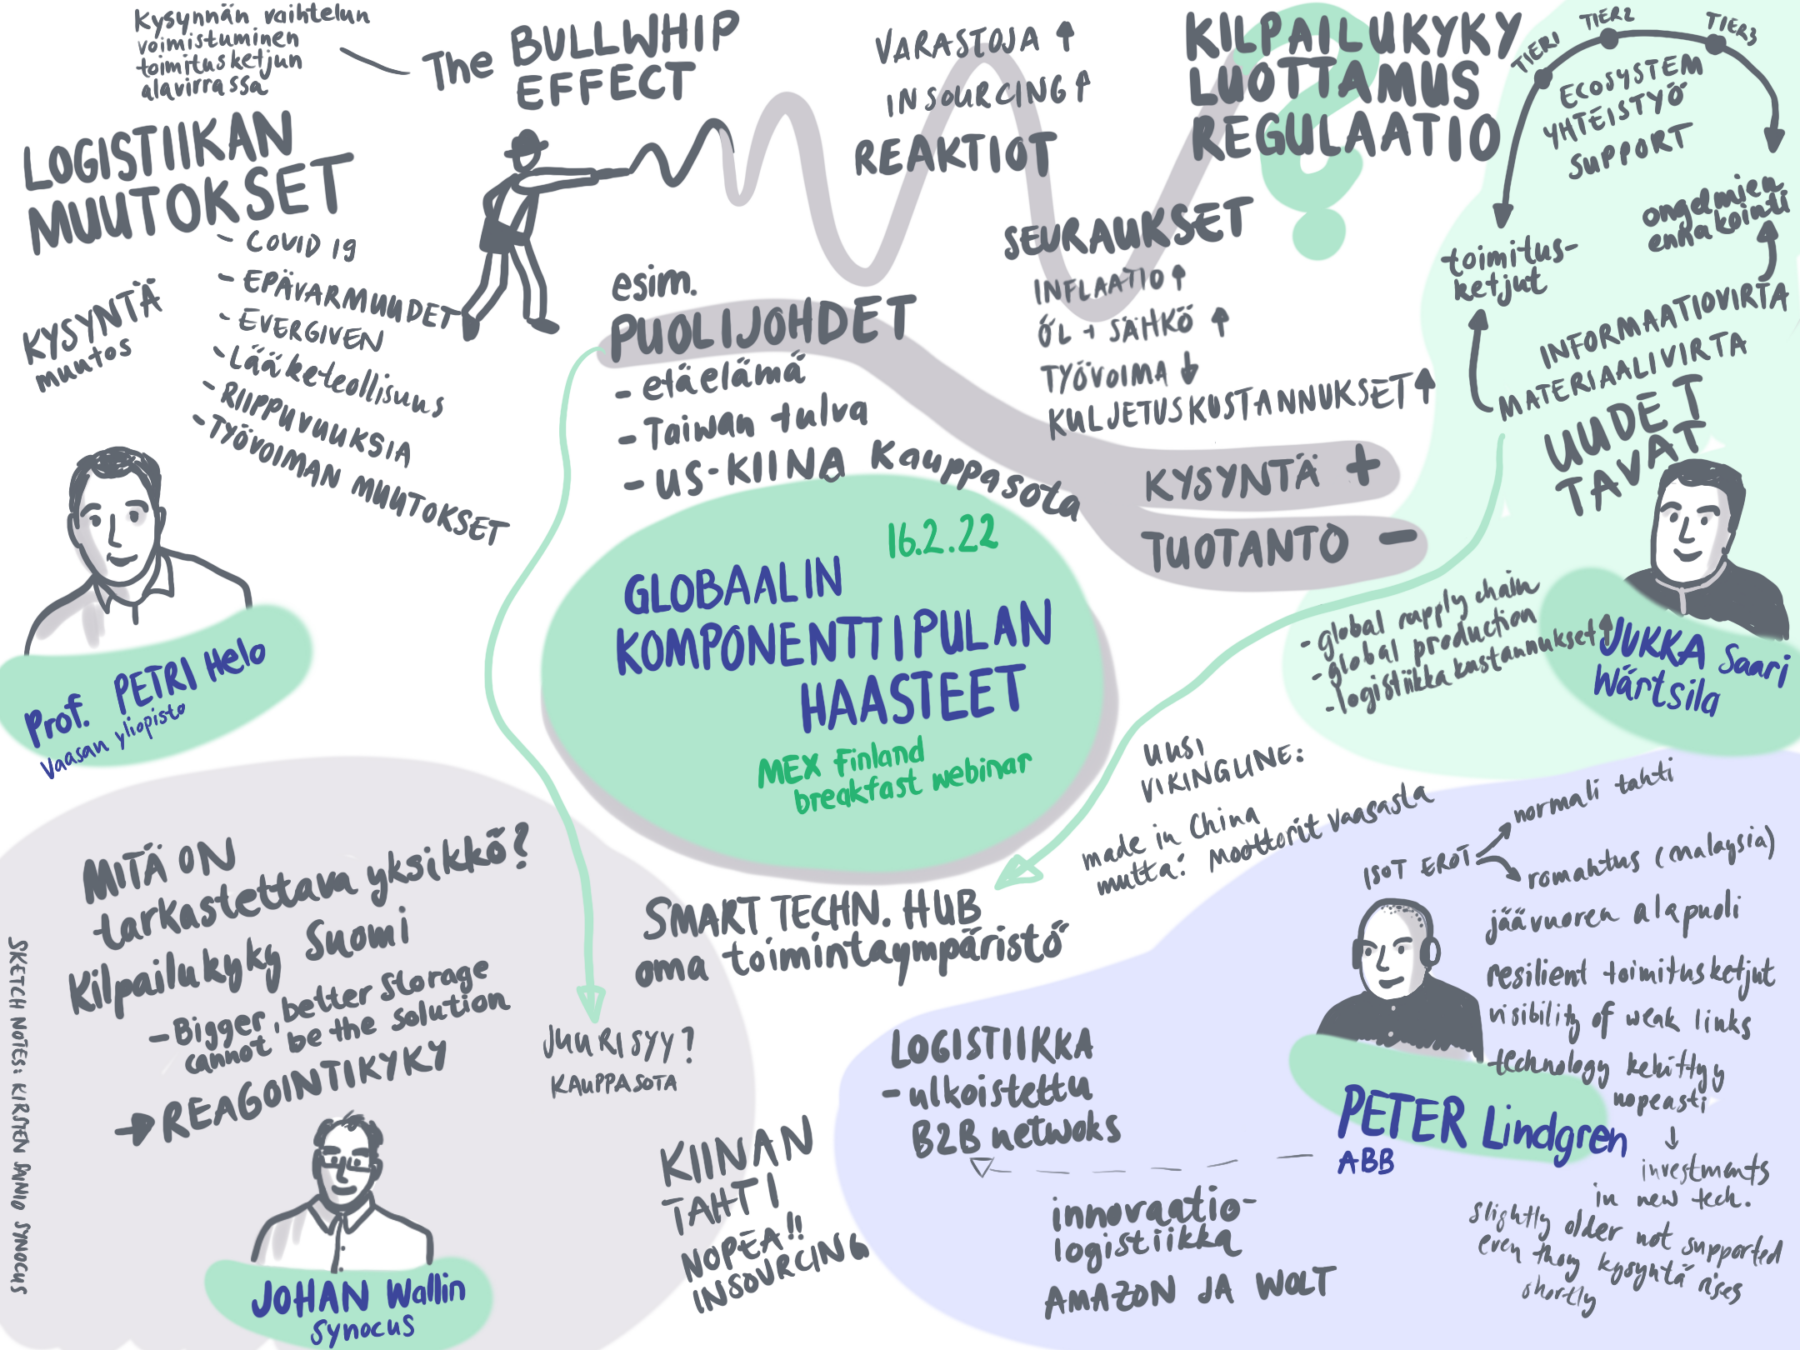 Kysynnän vaihtelun
voimistuminen
toimitusketjun
alavirrassa
The BULLWHIP
EFFECT
LOGISTIIKAN
MUUTOKSET
- COVID 19
- EPÄVARMUUDET
- EVERGIVEN
- Lääketeollisuus
- RIIPPUVUUKSIA
- TYÖVOIMAN MUUTOKSET
KYSYNTÄ
muutos
Prof. PETRI Helo
Vaasan yliopisto
VARASTOJA
INSOURCING
REAKTIOT
KILPAILUKYKY
LUOTTAMUS
REGULAATIO
?
SEURAUKSET
INFLAATIO
ÖL + SÄHKÖ
TYÖVOIMA
KULJETUSKUSTANNUKSET
esim.
PUOLIJOHDET
- etäelämä
- Taiwan tulva
- US-KIINA Kauppasota
KYSYNTÄ +
TUOTANTO -
TIER1
TIER2
TIER3
ECOSYSTEM
YHTEISTYÖ
SUPPORT
toimitus-
ketjut
ongelmien
ennakointi
INFORMAATIOVIRTA
MATERIAALIVIRTA
UUDET
TAVAT
- global supply chain
- global production
- logistiikkakustannukset
JUKKA Saari
Wärtsila
16.2.22
GLOBAALIN
KOMPONENTTIPULAN
HAASTEET
MEX Finland
breakfast webinar
UUSI
VIKINGLINE:
made in China
mutta: Moottorit Vaasasta
SMART TECHN. HUB
oma toimintaympäristö
MITÄ ON
tarkastettava yksikkö?
Kilpailukyky Suomi
- Bigger, better storage
cannot be the solution
REAGOINTIKYKY
JOHAN Wallin
Synocus
JUURISYY?
KAUPPASOTA
KIINAN
TAHTI
NOPEA!!
INSOURCING
LOGISTIIKKA
- ulkoistettu
B2B netwoks
innovaatio-
logistiikka
AMAZON JA WOLT
ISOT EROT
normali tahti
romahtus (malaysia)
jäävuoren alapuoli
resilient toimitusketjut
visibility of weak links
technology kehittyy
nopeasti
investments
in new tech.
slightly older not supported
even thoug kysyntä rises
shortly
PETER Lindgren
ABB
SKETCH NOTES: KIRSTEN SANIO SYNOCUS